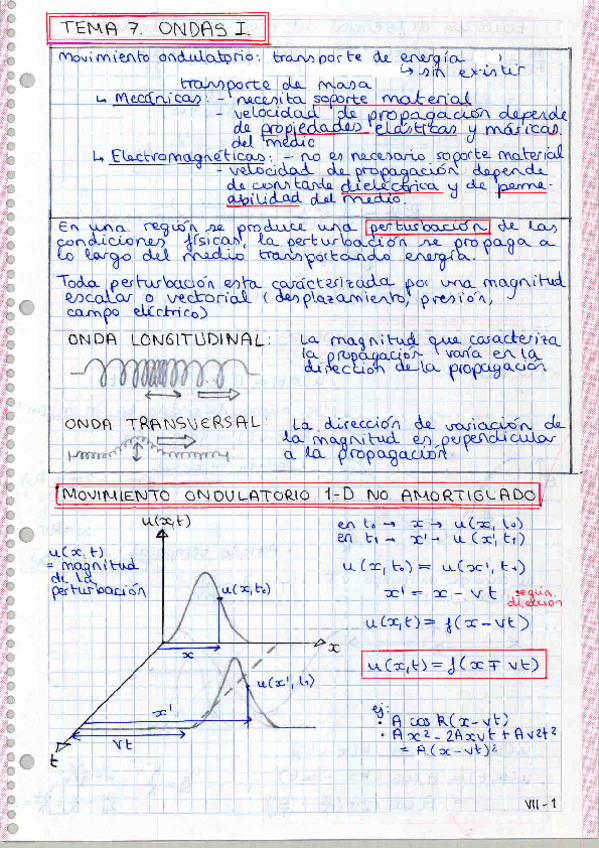 TEMA 7. ONDAS I.
Movimiento ondulatorio: transporte de energía
↳ sin existir
transporte de masa
↳ Mecánicas: - necesita soporte material
- velocidad de propagación depende
de propiedades elásticas y másicas
del medio
↳ Electromagnéticas: - no es necesario soporte material
- velocidad de propagación depende
de constante dieléctrica y de perme-
abilidad del medio.
En una región se produce una perturbación de las
condiciones físicas, la perturbación se propaga a
lo largo del medio transportando energía.
Toda perturbación esta carácterizada por una magnitud
escalar o vectorial (desplazamiento, presión,
campo eléctrico)
ONDA LONGITUDINAL: La magnitud que caracteriza
la propagación varía en la
dirección de la propagación
ONDA TRANSVERSAL: La dirección de variación de
la magnitud es perpendicular
a la propagación
MOVIMIENTO ONDULATORIO 1-D NO AMORTIGLADO
u(x,t)
u(x,t)
= magnitud
de la
perturbación
u(x,t₀)
x
x
u(x',t₁)
x'
vt
t
en t₀ → x → u(x,t₀)
en t₁ → x' → u(x',t₁)
u(x,t₀) = u(x',t₁)
x' = x - vt según dirección
u(x,t) = f(x-vt)
u(x,t) = f(x∓vt)
ej:
• A cos k(x-vt)
• Ax² - 2Axvt + Av²t²
= A(x-vt)²
VII-1